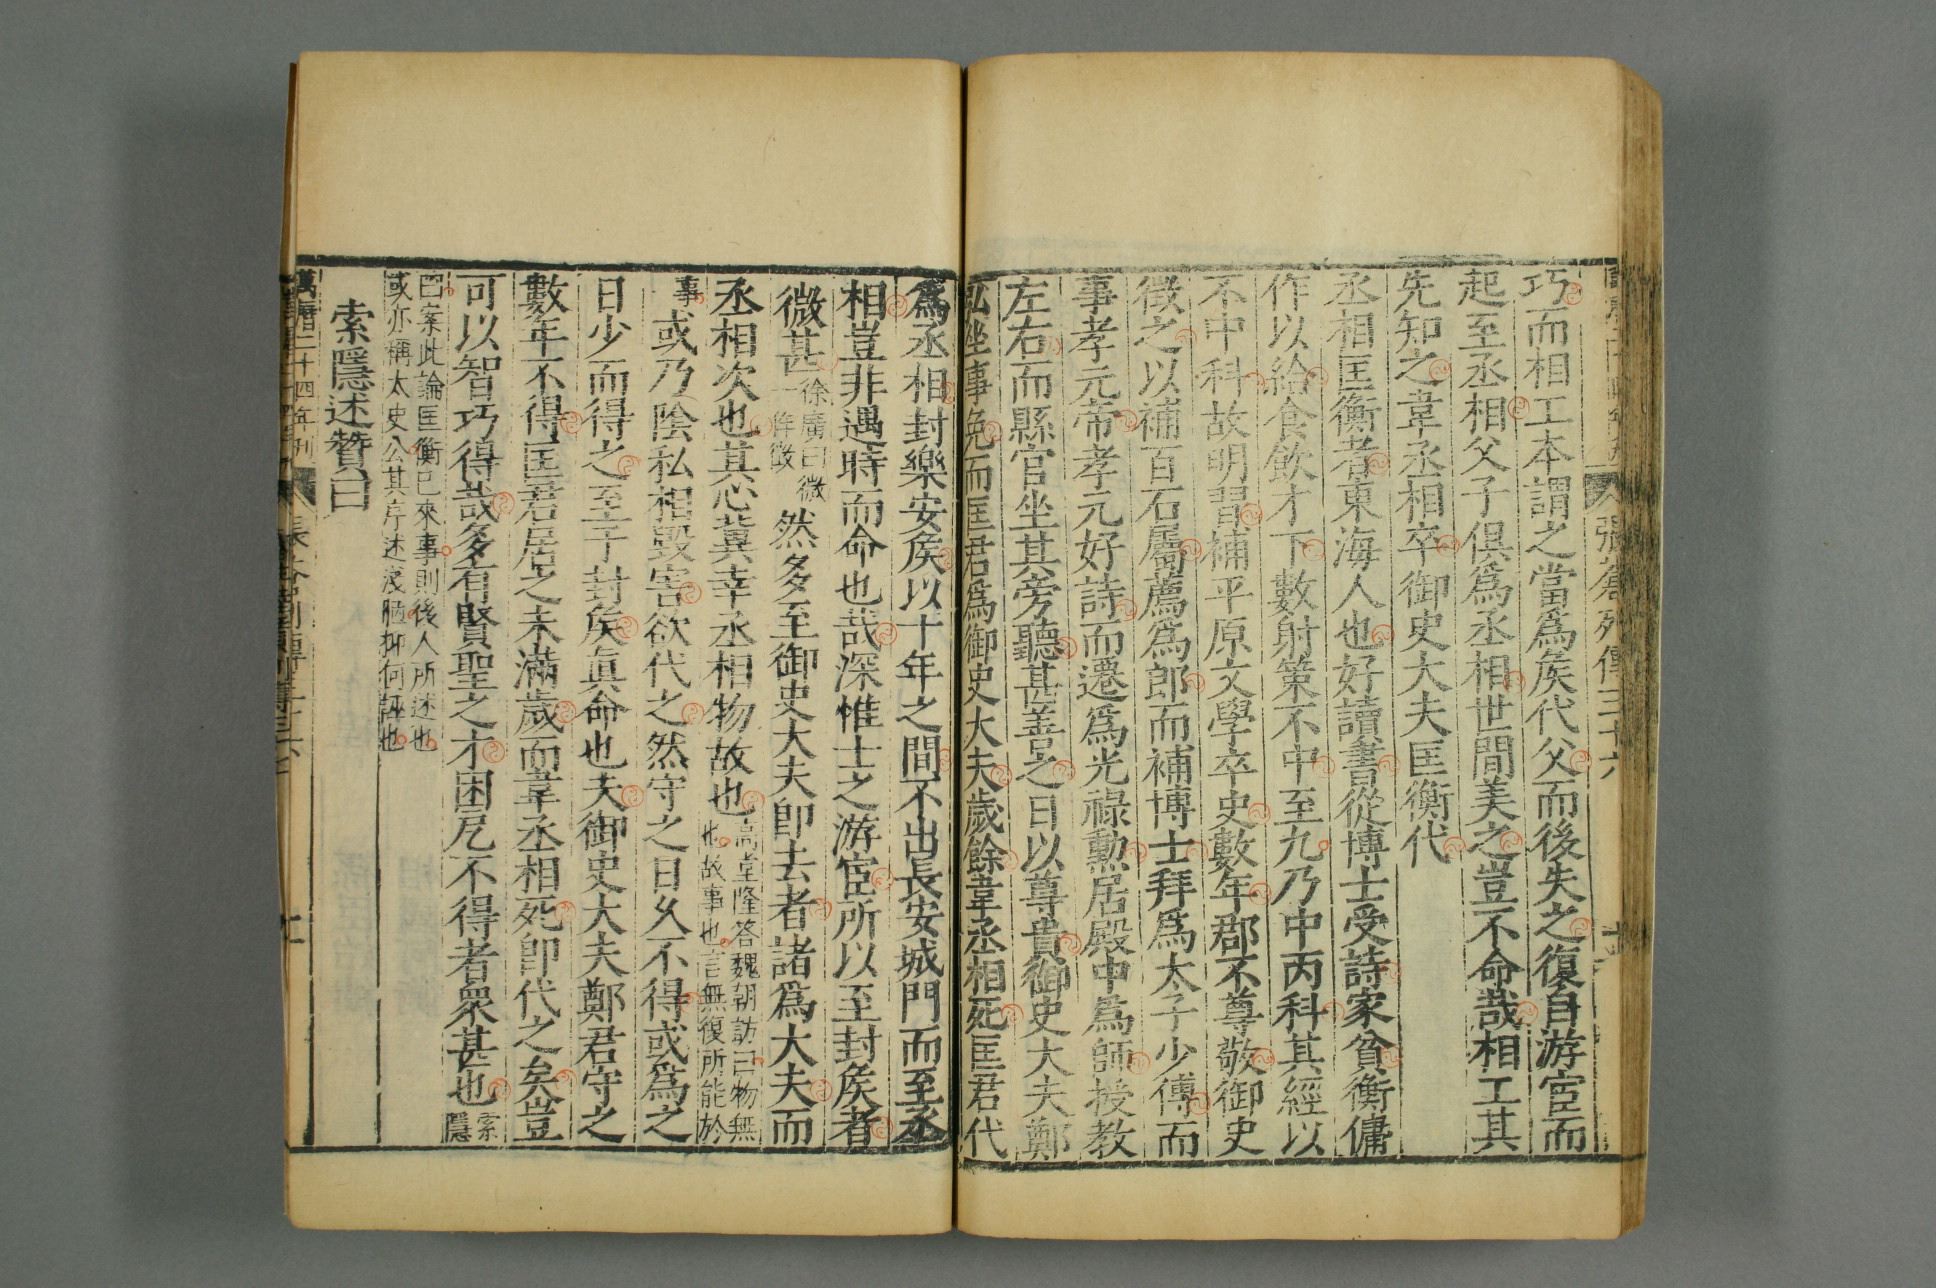 張蒼列傳三十六
巧而相工本謂之當爲侯代父而後失之復自游宦而
起至丞相父子俱爲丞相世間美之豈不命哉相工其
先知之韋丞相卒御史大夫匡衡代
丞相匡衡者東海人也好讀書從博士受詩家貧衡傭
作以給食飲才下數射策不中至九乃中丙科其經以
不中科故明習補平原文學卒史數年郡不尊敬御史
徵之以補百石屬薦爲郎而補博士拜爲太子少傅而
事孝元帝孝元好詩而遷爲光祿勲居殿中爲師授教
左右而縣官坐其旁聽甚善之日以尊貴御史大夫鄭
弘坐事免而匡君爲御史大夫歲餘韋丞相死匡君代
爲丞相封樂安侯以十年之間不出長安城門而至丞
相豈非遇時而命也哉深惟士之游宦所以至封侯者
微甚徐廣曰微一作徵然多至御史大夫卽去者諸爲大夫而
丞相次也其心冀幸丞相物故也高堂隆答魏朝訪曰物無也故事也言無復所能於
事或乃陰私相毀害欲代之然守之日久不得或爲之
日少而得之至于封侯眞命也夫御史大夫鄭君守之
數年不得匡君居之未滿歲而韋丞相死卽代之矣豈
可以智巧得哉多有賢聖之才困戹不得者衆甚也索隱
曰案此論匡衡已來事則後人所述也
或亦稱太史公其序述淺陋抑何誣也
索隱述贊曰
萬曆二十四年刊